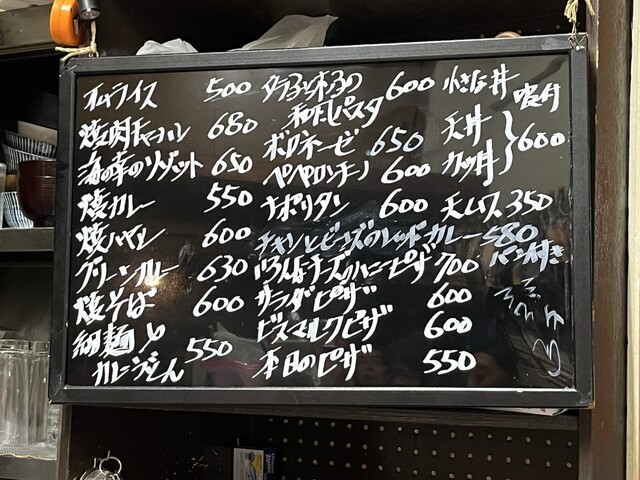 オムライス 500
焼肉チャーハン 680
海の幸のリゾット 650
焼カレー 550
焼ハヤシ 600
グリーンカレー 630
焼そば 600
細麺
カレーうどん 550
タラコときのこの
和だしパスタ 600
ボロネーゼ 650
ペペロンチーノ 600
ナポリタン 600
チキンとビーンズのレッドカレー 580
パン付き
いろんなチーズのハニーピザ 700
サラダピザ 600
ビスマルクピザ 600
本日のピザ 550
小さな丼
吸付
天丼
カツ丼 600
天ムス 350